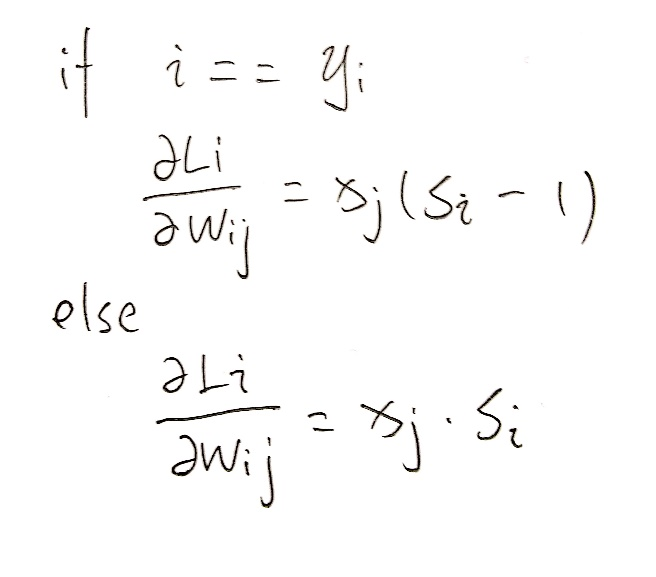 if i == yᵢ
∂Li/∂Wij = xj(Si - 1)
else
∂Li/∂Wij = xj · Si